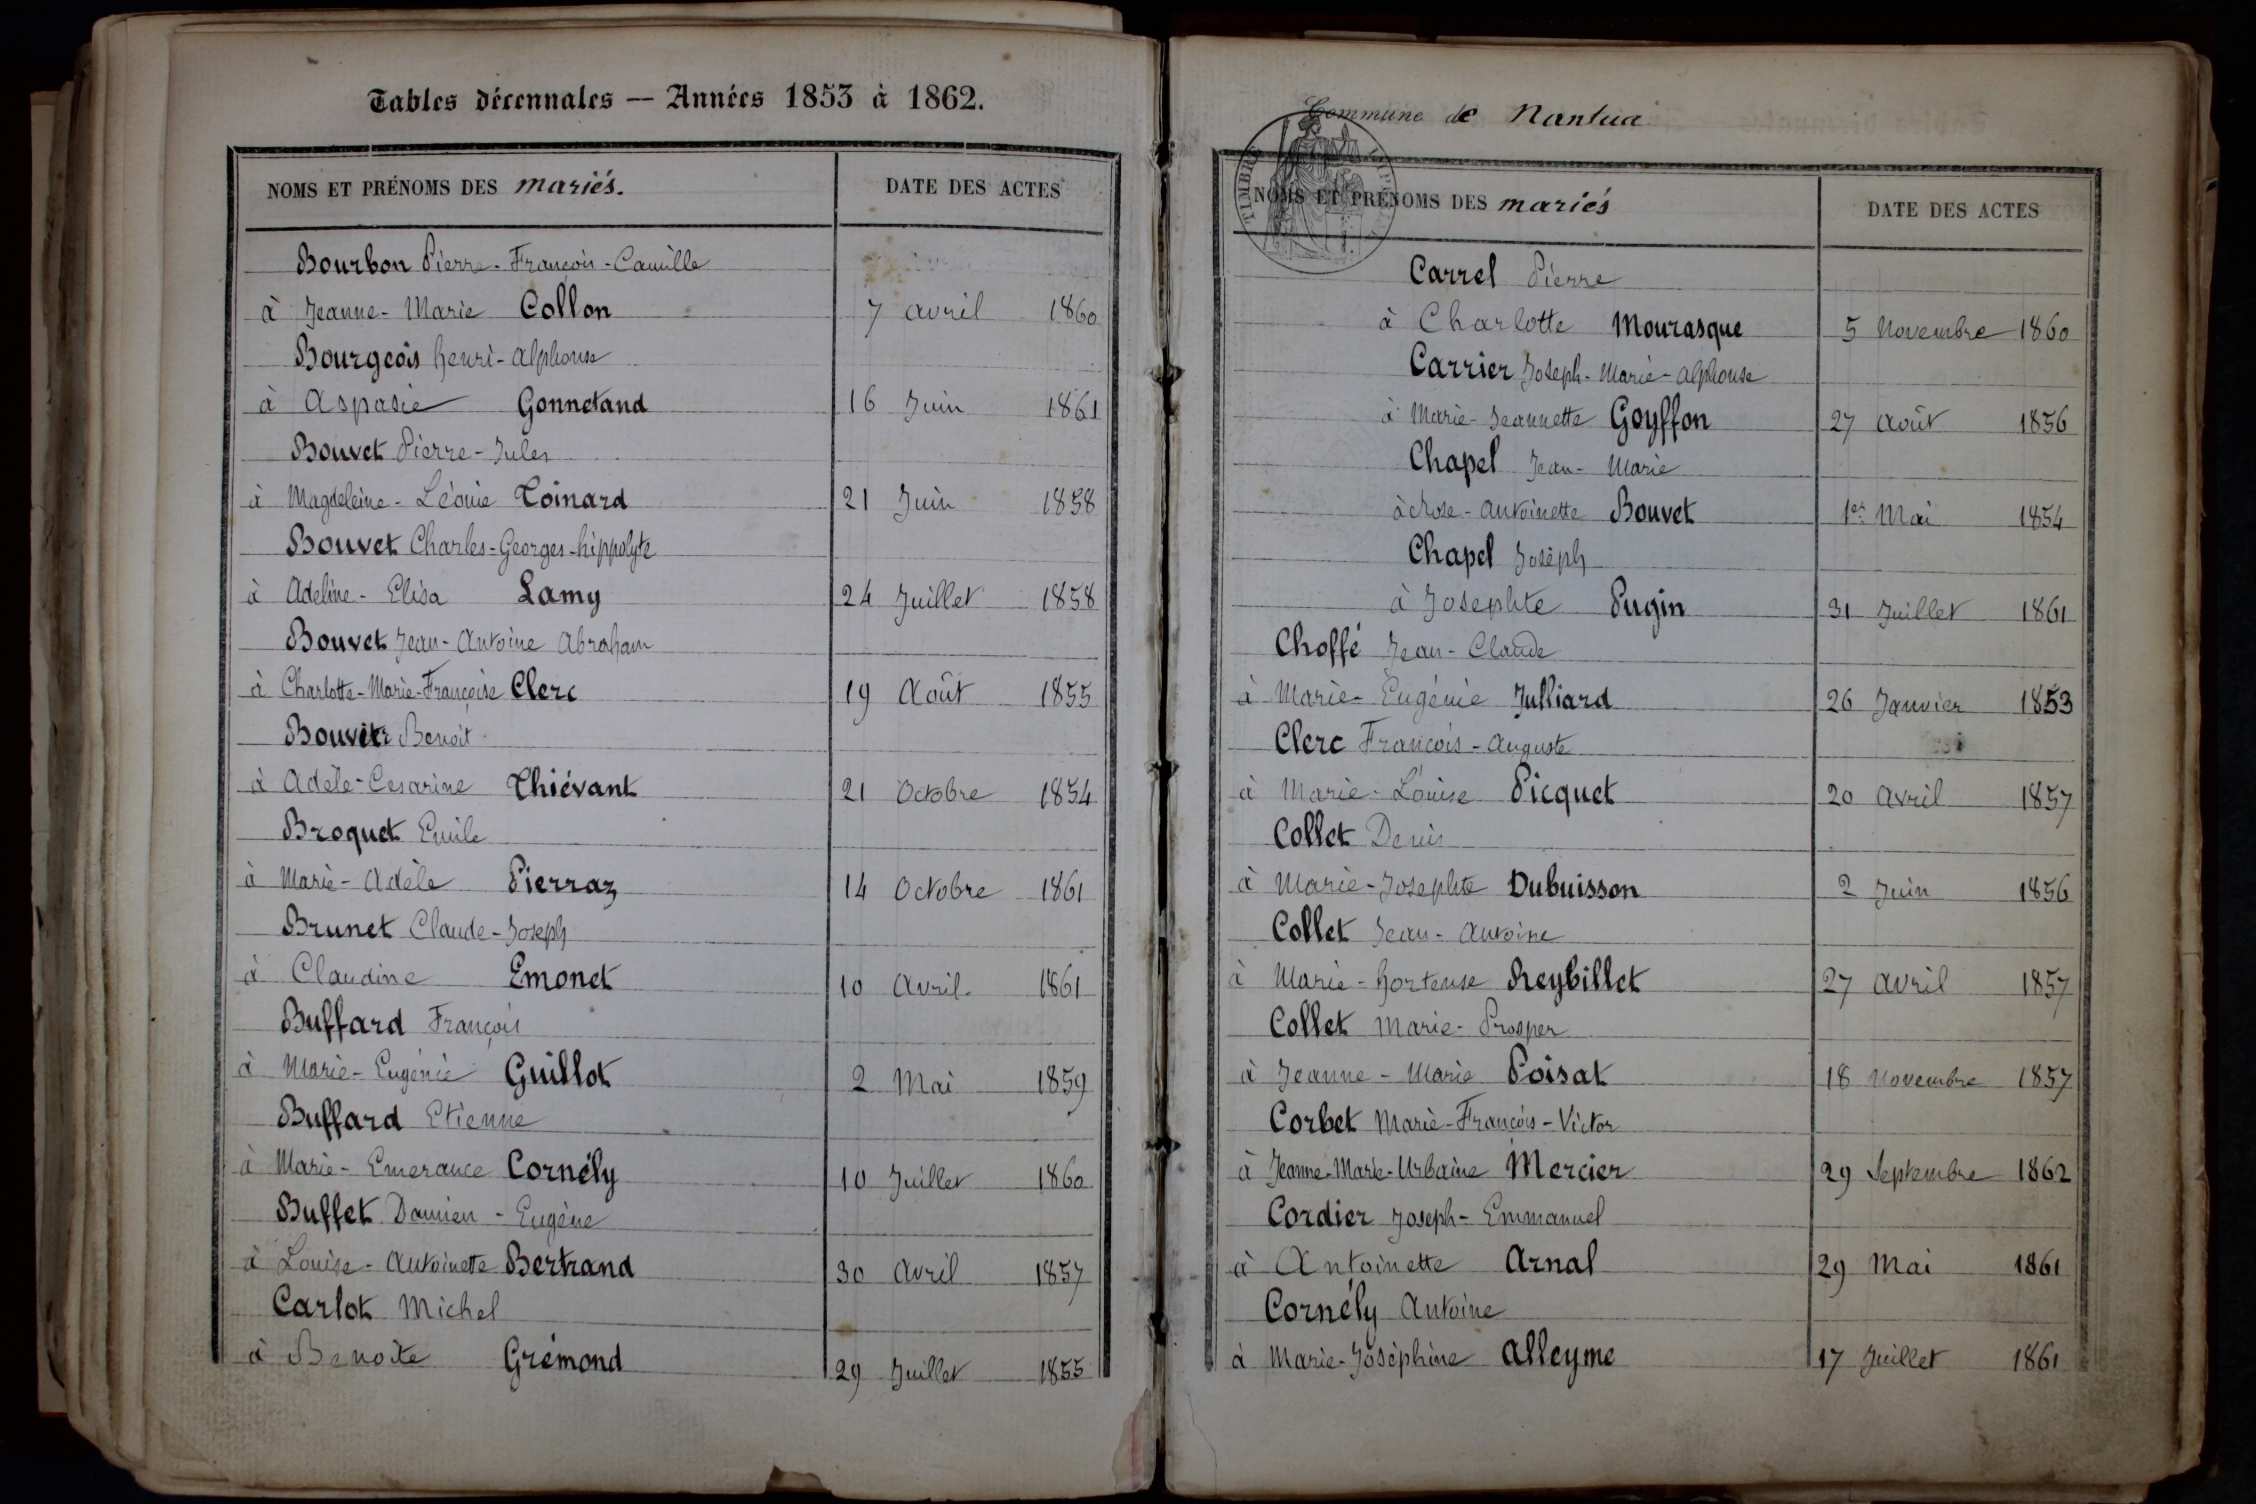 Tables décennales — Années 1853 à 1862.
NOMS ET PRÉNOMS DES mariés. DATE DES ACTES
Bourbon Pierre-François-Camille
à Jeanne-Marie Collon 7 avril 1860
Bourgeois henri-alphonse
à Aspasie Gonnetand 16 Juin 1861
Bouvet Pierre-Jules
à Magdeleine-Léonie Toinard 21 Juin 1858
Bouvet Charles-Georges-hippolyte
à Adeline-Elisa Lamy 24 Juillet 1858
Bouvet Jean-Antoine Abraham
à Charlotte-Marie-Françoise Clerc 19 Août 1855
Bouvier Benoit
à Adèle-Cesarine Thiévant 21 Octobre 1854
Broquet Emile
à Marie-Adèle Pierraz 14 Octobre 1861
Brunet Claude-Joseph
à Claudine Emonet 10 Avril 1861
Buffard François
à Marie-Eugénie Guillot 2 Mai 1859
Buffard Etienne
à Marie-Emerance Cornély 10 Juillet 1860
Buffet Damien-Eugène
à Louise-Antoinette Bertrand 30 avril 1857
Carlot Michel
à Benoite Grémond 29 Juillet 1855
Commune de Nantua
TIMBRE
NOMS ET PRÉNOMS DES mariés DATE DES ACTES
Carrel Pierre
à Charlotte Mourasque 5 Novembre 1860
Carrier Joseph-Marie-alphonse
à Marie-Jeannette Goyffon 27 août 1856
Chapel Jean-Marie
à Rose-antoinette Bouvet 1er Mai 1854
Chapel Joseph
à Josephte Pugin 31 Juillet 1861
Choffé Jean-Claude
à Marie-Eugénie Julliard 26 Janvier 1853
Clerc François-auguste
à Marie-Louise Picquet 20 avril 1857
Collet Denis
à Marie-Josephte Dubuisson 2 Juin 1856
Collet Jean-antoine
à Marie-hortense Reybillet 27 avril 1857
Collet Marie-Prosper
à Jeanne-Marie Poisat 18 Novembre 1857
Corbet Marie-François-Victor
à Jeanne-Marie-Urbaine Mercier 29 Septembre 1862
Cordier Joseph-Emmanuel
à Antoinette Arnal 29 Mai 1861
Cornély Antoine
à Marie-Joséphine Alleyme 17 Juillet 1861